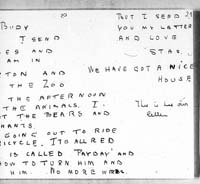 20
BUDY
I SEND
ES AND
AM IN
TON AND
THE ZOO
THE AFTERNOON
THE ANIMALS. I.
T THE BEARS AND
HANTS.
GOING OUT TO RIDE
ICYCLE. ITO ALRED
IS CALLED PAYDAY AND
HOW TO TURN HIM AND
HIM. NO MORE
BUT I SEND 21
YOU MY LETTER
AND LOVE
STAR.
WE HAVE GOT A NICE
HOUSE
This is his own
letter